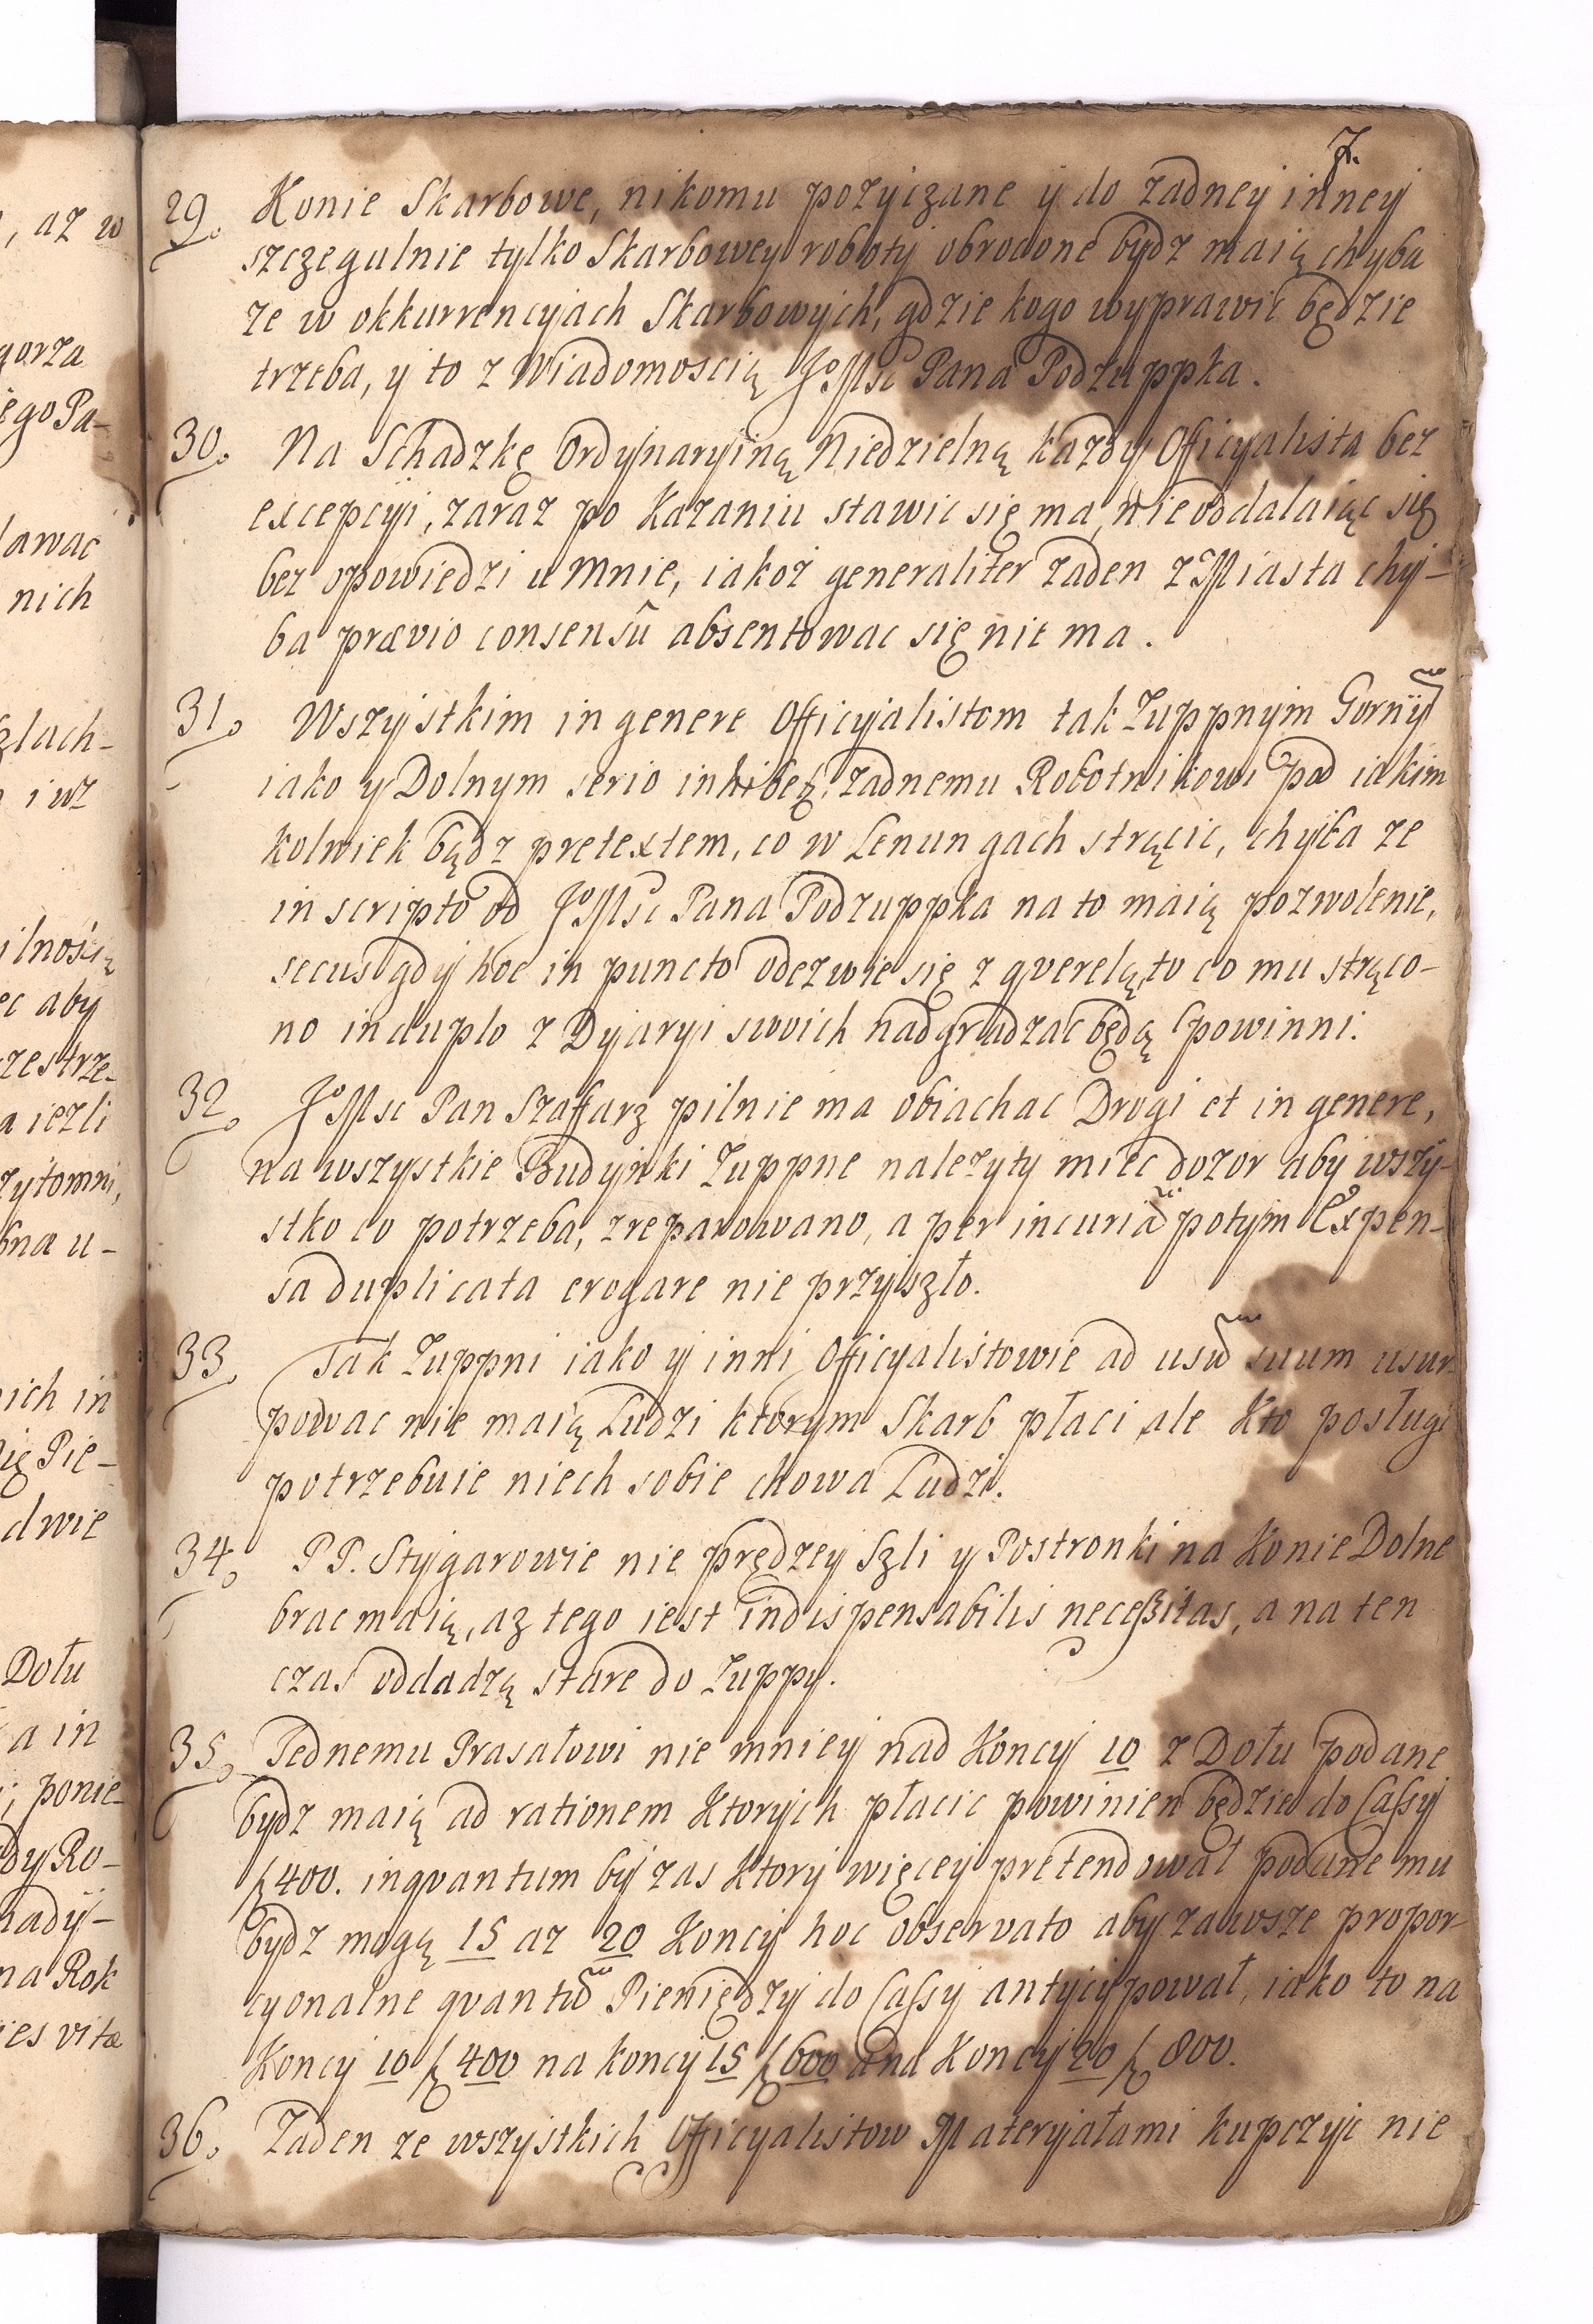 7.
29. Konie Skarbowe, nikomu pozyczane y do zadney inney
szczegulnie tylko Skarbowey roboty obrocone bydz maią chyba
ze w okkurrencyach Skarbowych, gdzie kogo wyprawic będzie
trzeba, y to z Wiadomoscią JoMsc Pana Podzuppka.
30. Na Schadzkę Ordynaryiną Niedzielną kazdy Officyalista bez
excepcyi, zaraz po Kazaniu stawic się ma, nieoddalaiąc się
bez opowiedzi u Mnie, iakoż generaliter zaden z Miasta chy-
ba prævio consensû absentowac się nie ma.
31. Wszystkim in genere Officyalistom tak Zuppnym Gorny
iako y Dolnym serio inhibeẜ. zadnemu Robotnikowi pod iakim
kolwiek bądz pretextem, co w Lenungach strącic, chyba ze
in scripto od JoMsc Pana Podzuppka na to maią pozwolenie,
secus gdy hoc in puncto odezwie się z qverelą, to co mu strąco-
no in duplo z Dyaryi swoich nadgradzac będą powinni.
32. JoMsc Pan Szaffarz pilnie ma obiachac Drogi et in genere,
na wszystkie Budynki Zuppne nalezyty miec dozor aby wszy-
stko co potrzeba, zreparowano, a per incuria potym Expen-
sa duplicata erogare nie przyszło.
33. Tak Zuppni iako y inni Officyalistowie ad usu suum usur-
powac nie maią Ludzi ktorym Skarb płaci ale Kto posługi
potrzebuie niech sobie chowa Ludzi.
34. PP. Stygarowie nie prędzey Szli y Postronki na Konie Dolne
brac maią, az tego iest indispensabilis neceßitas, a na ten
czas oddadzą stare do Zuppy.
35. Jednemu Prasałowi nie mniey nad Koncy 10 z Dołu podane
bydz maią ad rationem Ktorych płacic powinien będzie do Caſsy
ƒ 400. inqvantum by zas Ktory więcey pretendował podane mu
bydz mogą 15 az 20 Koncy hoc observato aby zawsze propor-
cyonalne qvantu Pieniędzy do Caſsy antycypował, iako to na
Koncy 10 ƒ 400 na koncy 15 ƒ 600 a na Koncy 20 ƒ 800.
36. Zaden ze wszystkich Officyalistow Materyałami kupczyc nie
, az w
gorza
ego Pa-
nich
szlach-
ec aby
zestrze-
a iezli
zytomni,
nich in
dwie
Dołu
a in
ponie-
dy Ro-
na Rok
es vitæ